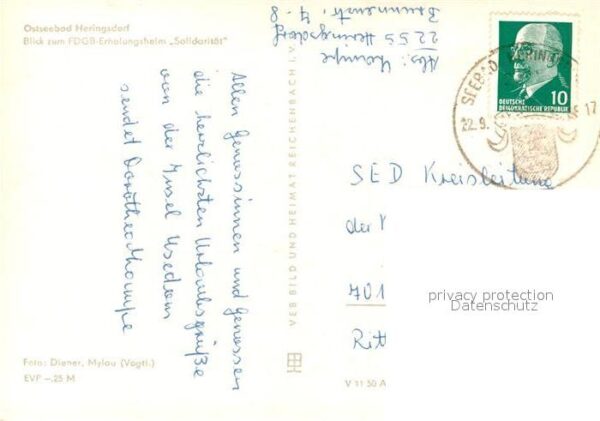 Ostseebad Heringsdorf
Blick zum FDGB-Erholungsheim „Solidarität"
Allen Genossinnen und Genossen
die herzlichsten Urlaubsgrüße
von der Insel Usedom
sendet Dorothea Thampe
Foto: Diener, Mylau (Vogtl.)
EVP –,25 M
VEB BILD UND HEIMAT REICHENBACH I. V.
V 11 50 A
Abs: Thampe
2255 Heringsdorf
Brunnenstr. 4-8
SEEBAD HERINGSD
22.9.
17
DEUTSCHE
DEMOKRATISCHE REPUBLIK
10
SED Kreisleitung
der
701
Ritt
privacy protection
Datenschutz